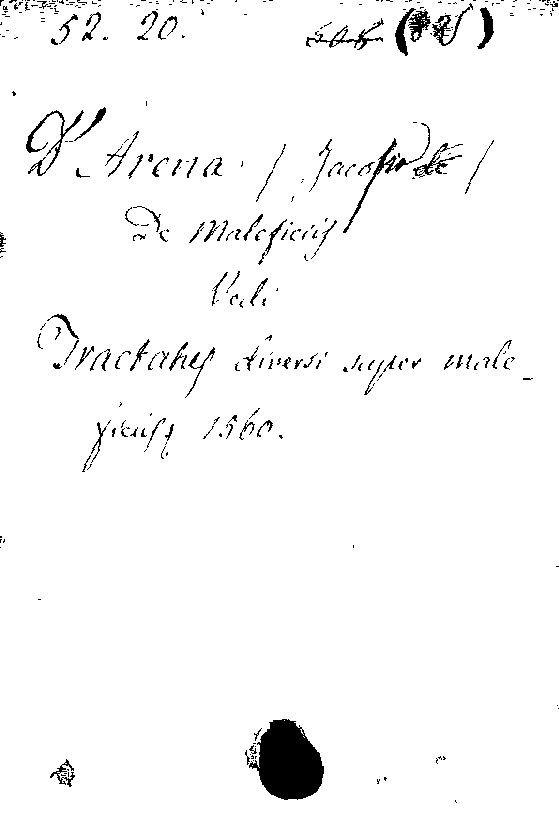 52. 20.
D'Arena / Jacopo de /
De Maleficiis
Vedi
Tractatus diversi super male-
ficiis 1560.